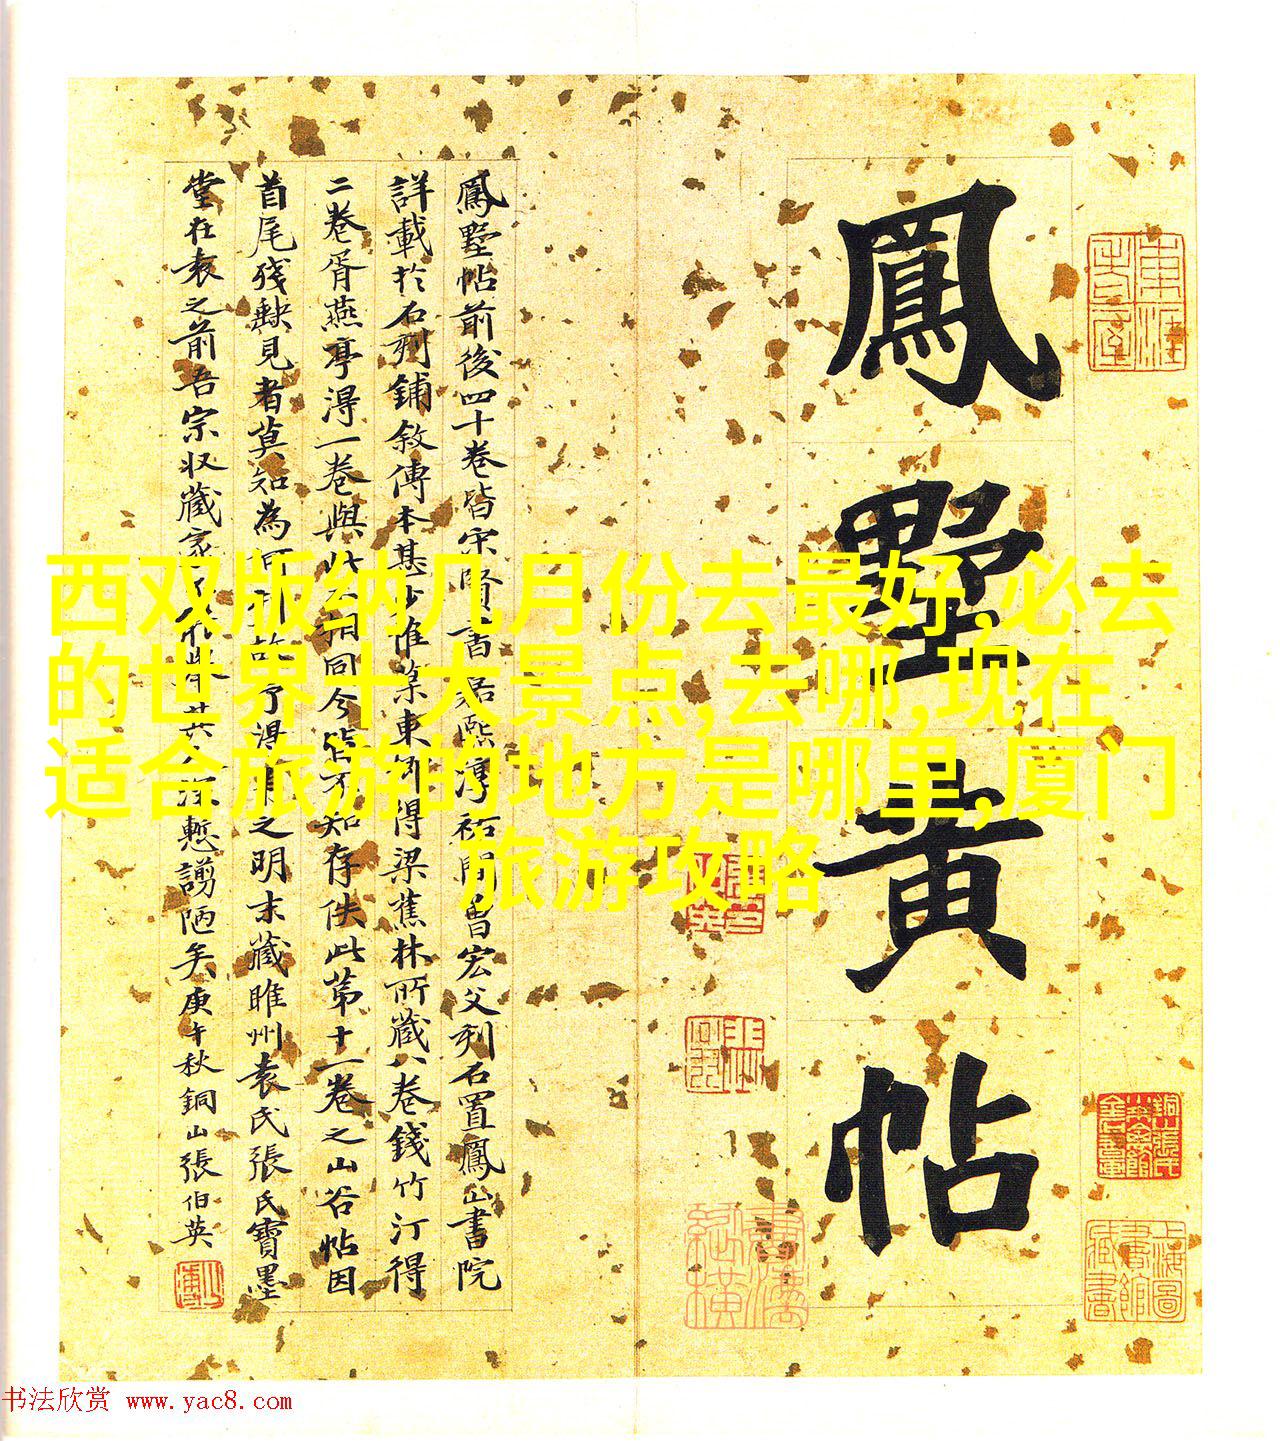 鳳墅黄帖
鳳墅帖前後四十卷皆宋賢書嘉熙淳祐間曾宏父刻石置鳳山書院
詳載於石刻鋪敘傳本甚少惟葉東卿得梁蕉林所藏八卷錢竹汀得
二卷胥燕亭得一卷與此相同今皆不知存佚此第十一卷之山谷帖因
首尾殘缺見者莫知為何刻故予得之明末藏睢州袁氏張氏寶墨
堂在袁之前吾宗収藏家其人深慙謭陋矣庚午秋銅山張伯英
西双版纳几月份去最好,必去
的世界十大景点,去哪,现在
适合旅游的地方是哪里,厦门
旅游攻略
书法欣赏 www.yac8.com